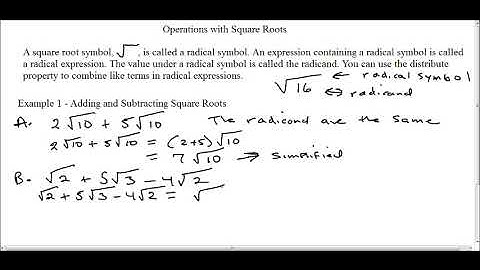 Operations with Square Roots
A square root symbol, √ , is called a radical symbol. An expression containing a radical symbol is called
a radical expression. The value under a radical symbol is called the radicand. You can use the distribute
property to combine like terms in radical expressions.
√16 ← radical symbol
↔ radicand
Example 1 - Adding and Subtracting Square Roots
A. 2√10 + 5√10 The radicand are the same
2√10 + 5√10 = (2+5)√10
= 7√10 → simplified
B. √2 + 5√3 − 4√2
√2 + 5√3 − 4√2 = √